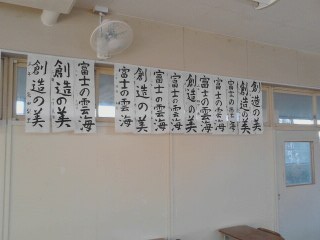 創造の美
創造の美
富士の雲海
富士の雲海
創造の美
富士の雲海
富士の雲海
創造の美
富士の雲海
富士の雲海
富士の雲海
創造の美
創造の美